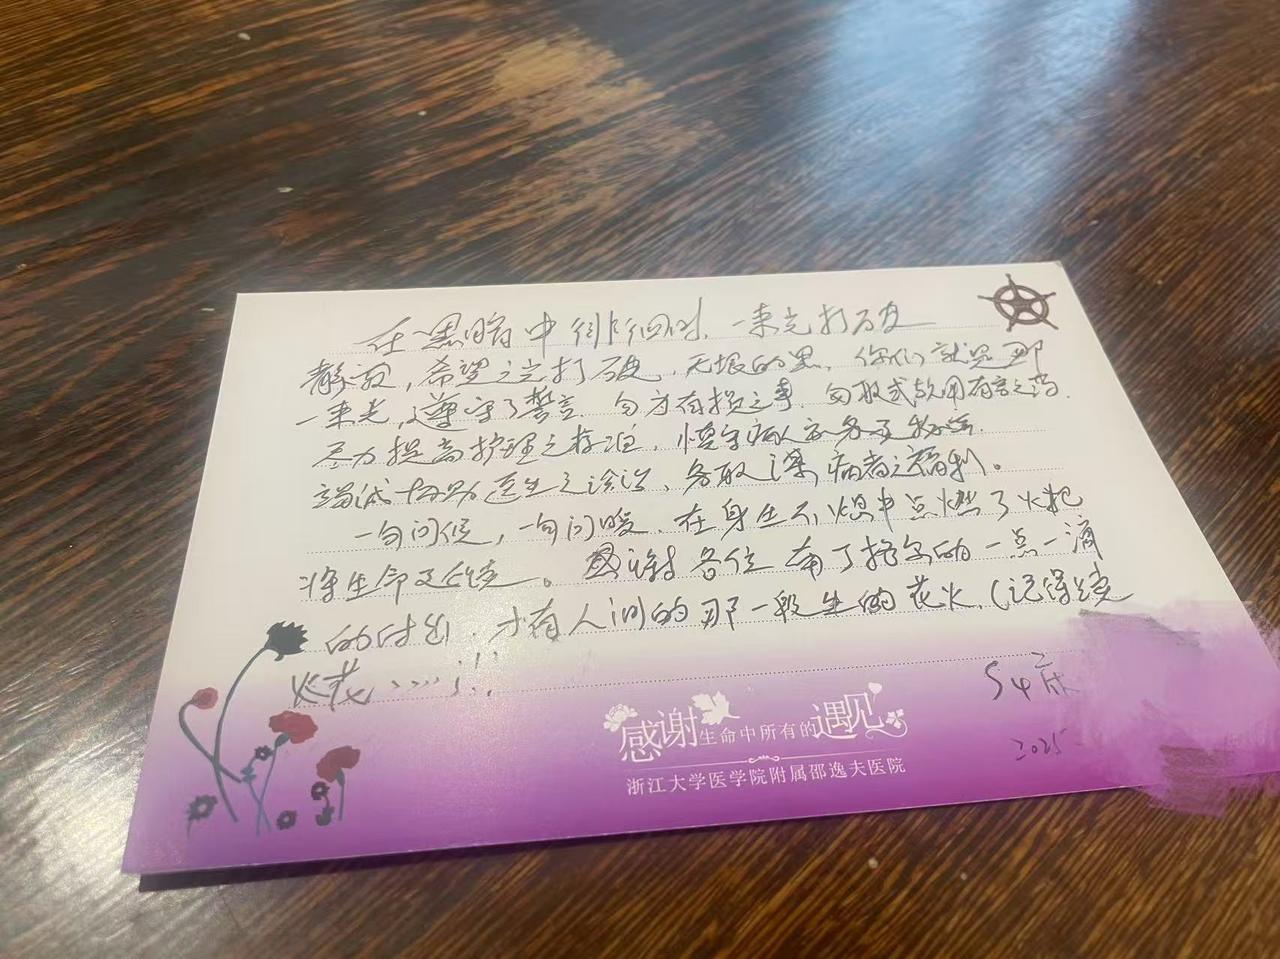 在黑暗中徘徊时，一束光打破
静寂，希望之光打破，无垠的黑，你们就是那
一束光，遵守了誓言，勿为有损之事，勿取或故用有害之药.
尽力提高护理之标准，慎守病人家务及秘密.
竭诚协助医生之诊治，务取谋病者之福利。
一句问候，一句问暖，在身生中点燃了火把
将生命延续。感谢各位有了你们的一点一滴
的付出，才有人间的那一段生的花火，(记得绕
火花
54床
2025
感谢生命中所有的遇见
浙江大学医学院附属邵逸夫医院